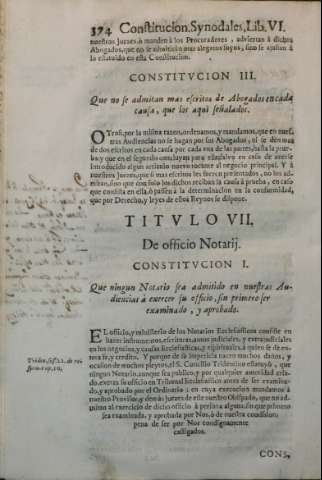 374 Constitucion. Synodales, Lib. VI.
nuestros Juezes, ò manden à los Procuradores, adviertan à dichos
Abogados, que no se admitirán mas alegatos suyos, sino se ajustan à
lo estatuido en esta Constitucion.
CONSTITVCION III.
Que no se admitan mas escritos de Abogados en cada
causa, que los aqui señalados.
OTrosi, por la misma razon, ordenamos, y mandamos, que en nues-
tras Audiencias no se hagan por los Abogados, ni se dèn mas
de dos escritos en cada causa por cada vna de las partes, hasta la prue-
ba, y que en el segundo concluyan para ella, salvo en caso de averse
introducido algun articulo nuevo tocante al negocio principal. Y à
nuestros Juezes, que si mas escritos les fueren presentados, no los ad-
mitan, sino que con solo los dichos reciban la causa à prueba, en caso
que consista en ella, ò passen à la determinacion en la conformidad,
que por Derecho, y leyes de estos Reynos se dispone.
TITVLO VII.
De officio Notarij.
CONSTITVCION I.
Que ningun Notario sea admitido en nuestras Au-
diencias à exercer su oficio, sin primero ser
examinado, y aprobado.
EL oficio, y ministerio de los Notarios Ecclesiasticos consiste en
hazer instrumentos, escrituras, autos judiciales, y extrajudiciales
en los negocios, y causas Ecclesiasticas, y espirituales, à quien se dè en-
tera fe, y credito. Y porque de su impericia nacen muchos daños, y
ocasion de muchos pleytos, el S. Concilio Tridentino estatuyò, que
ningun Notario, aunque sea publico, y por qualquier autoridad criado
exerza su oficio en Tribunal Ecclesiastico antes de ser examina-
do, y aprobado por el Ordinario: en cuya execucion mandamos à
nuestro Provisor, y demàs Juezes de este nuestro Obispado, que no ad-
mitan al exercicio de dicho oficio à persona alguna, sin que primero
sea examinada, y aprobada por Nos, ò de nuestra comission,
pena de ser por Nos condignamente
castigados.
Triden. sess. 22. de re-
form. cap. 10.
CONS-